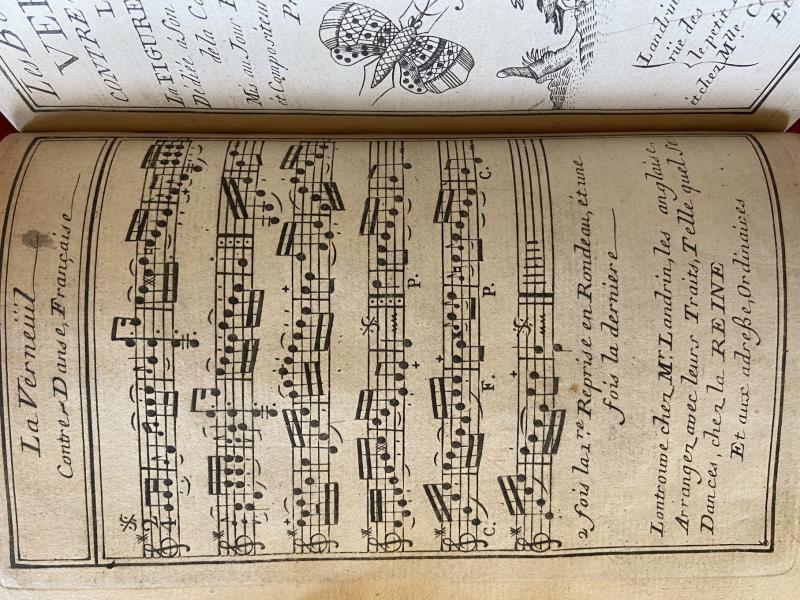 Les B
VER
CONTRE
La FIGURE
Dédiée à Son
de la Co
Mis au Jour P
et Compositeur
Landrin
rüe des
le petit
et chez Mlle. C
La Verneüil
Contre Danse, Française
2
4
P.
F. P.
C. C.
2 fois la 1re Reprise en Rondeau, et une
fois la derniere
Lontrouve chez Mr. Landrin, les anglaise,
Arranger avec leurs Traits, Telle quel Se
Dances, chez la REINE
Et aux adreße, Ordinaices